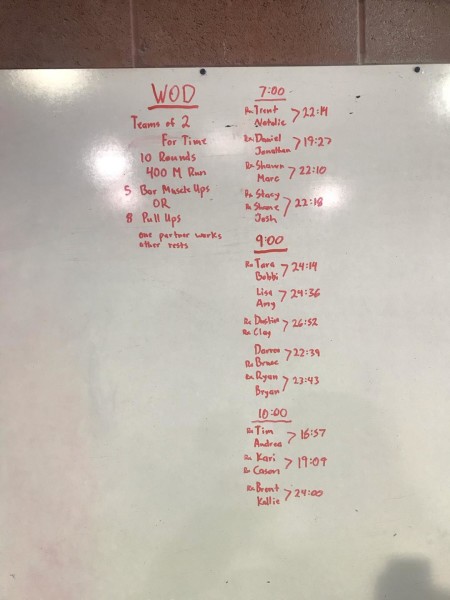 WOD
Teams of 2
For Time
10 Rounds
400 M Run
5 Bar Muscle Ups
OR
8 Pull Ups
one partner works
other rests
7:00
Rx Trent
Natalie > 22:14
Rx Daniel
Jonathan > 19:27
Rx Shawn
Marc > 22:10
Rx Stacy
Rx Shane
Josh > 22:18
9:00
Rx Tara
Bobbi > 24:14
Lisa
Amy > 24:36
Rx Dustin
Rx Clay > 26:52
Darren
Rx Bruce > 22:39
Rx Ryan
Bryan > 23:43
10:00
Rx Tim
Andrea > 16:57
Rx Kari
Rx Cason > 19:09
Rx Brent
Kallie > 24:00